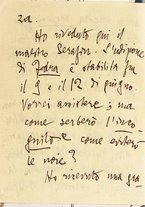 2a.
Ho riveduto qui il
maestro Serafin. L'edizione
di Fedra è stabilita fra
il 9 e il 12 di giugno.
Vorrei assistere; ma
come serberò l'inco
gnito e come eviterò
le noie?
Ho ricevuto una gra